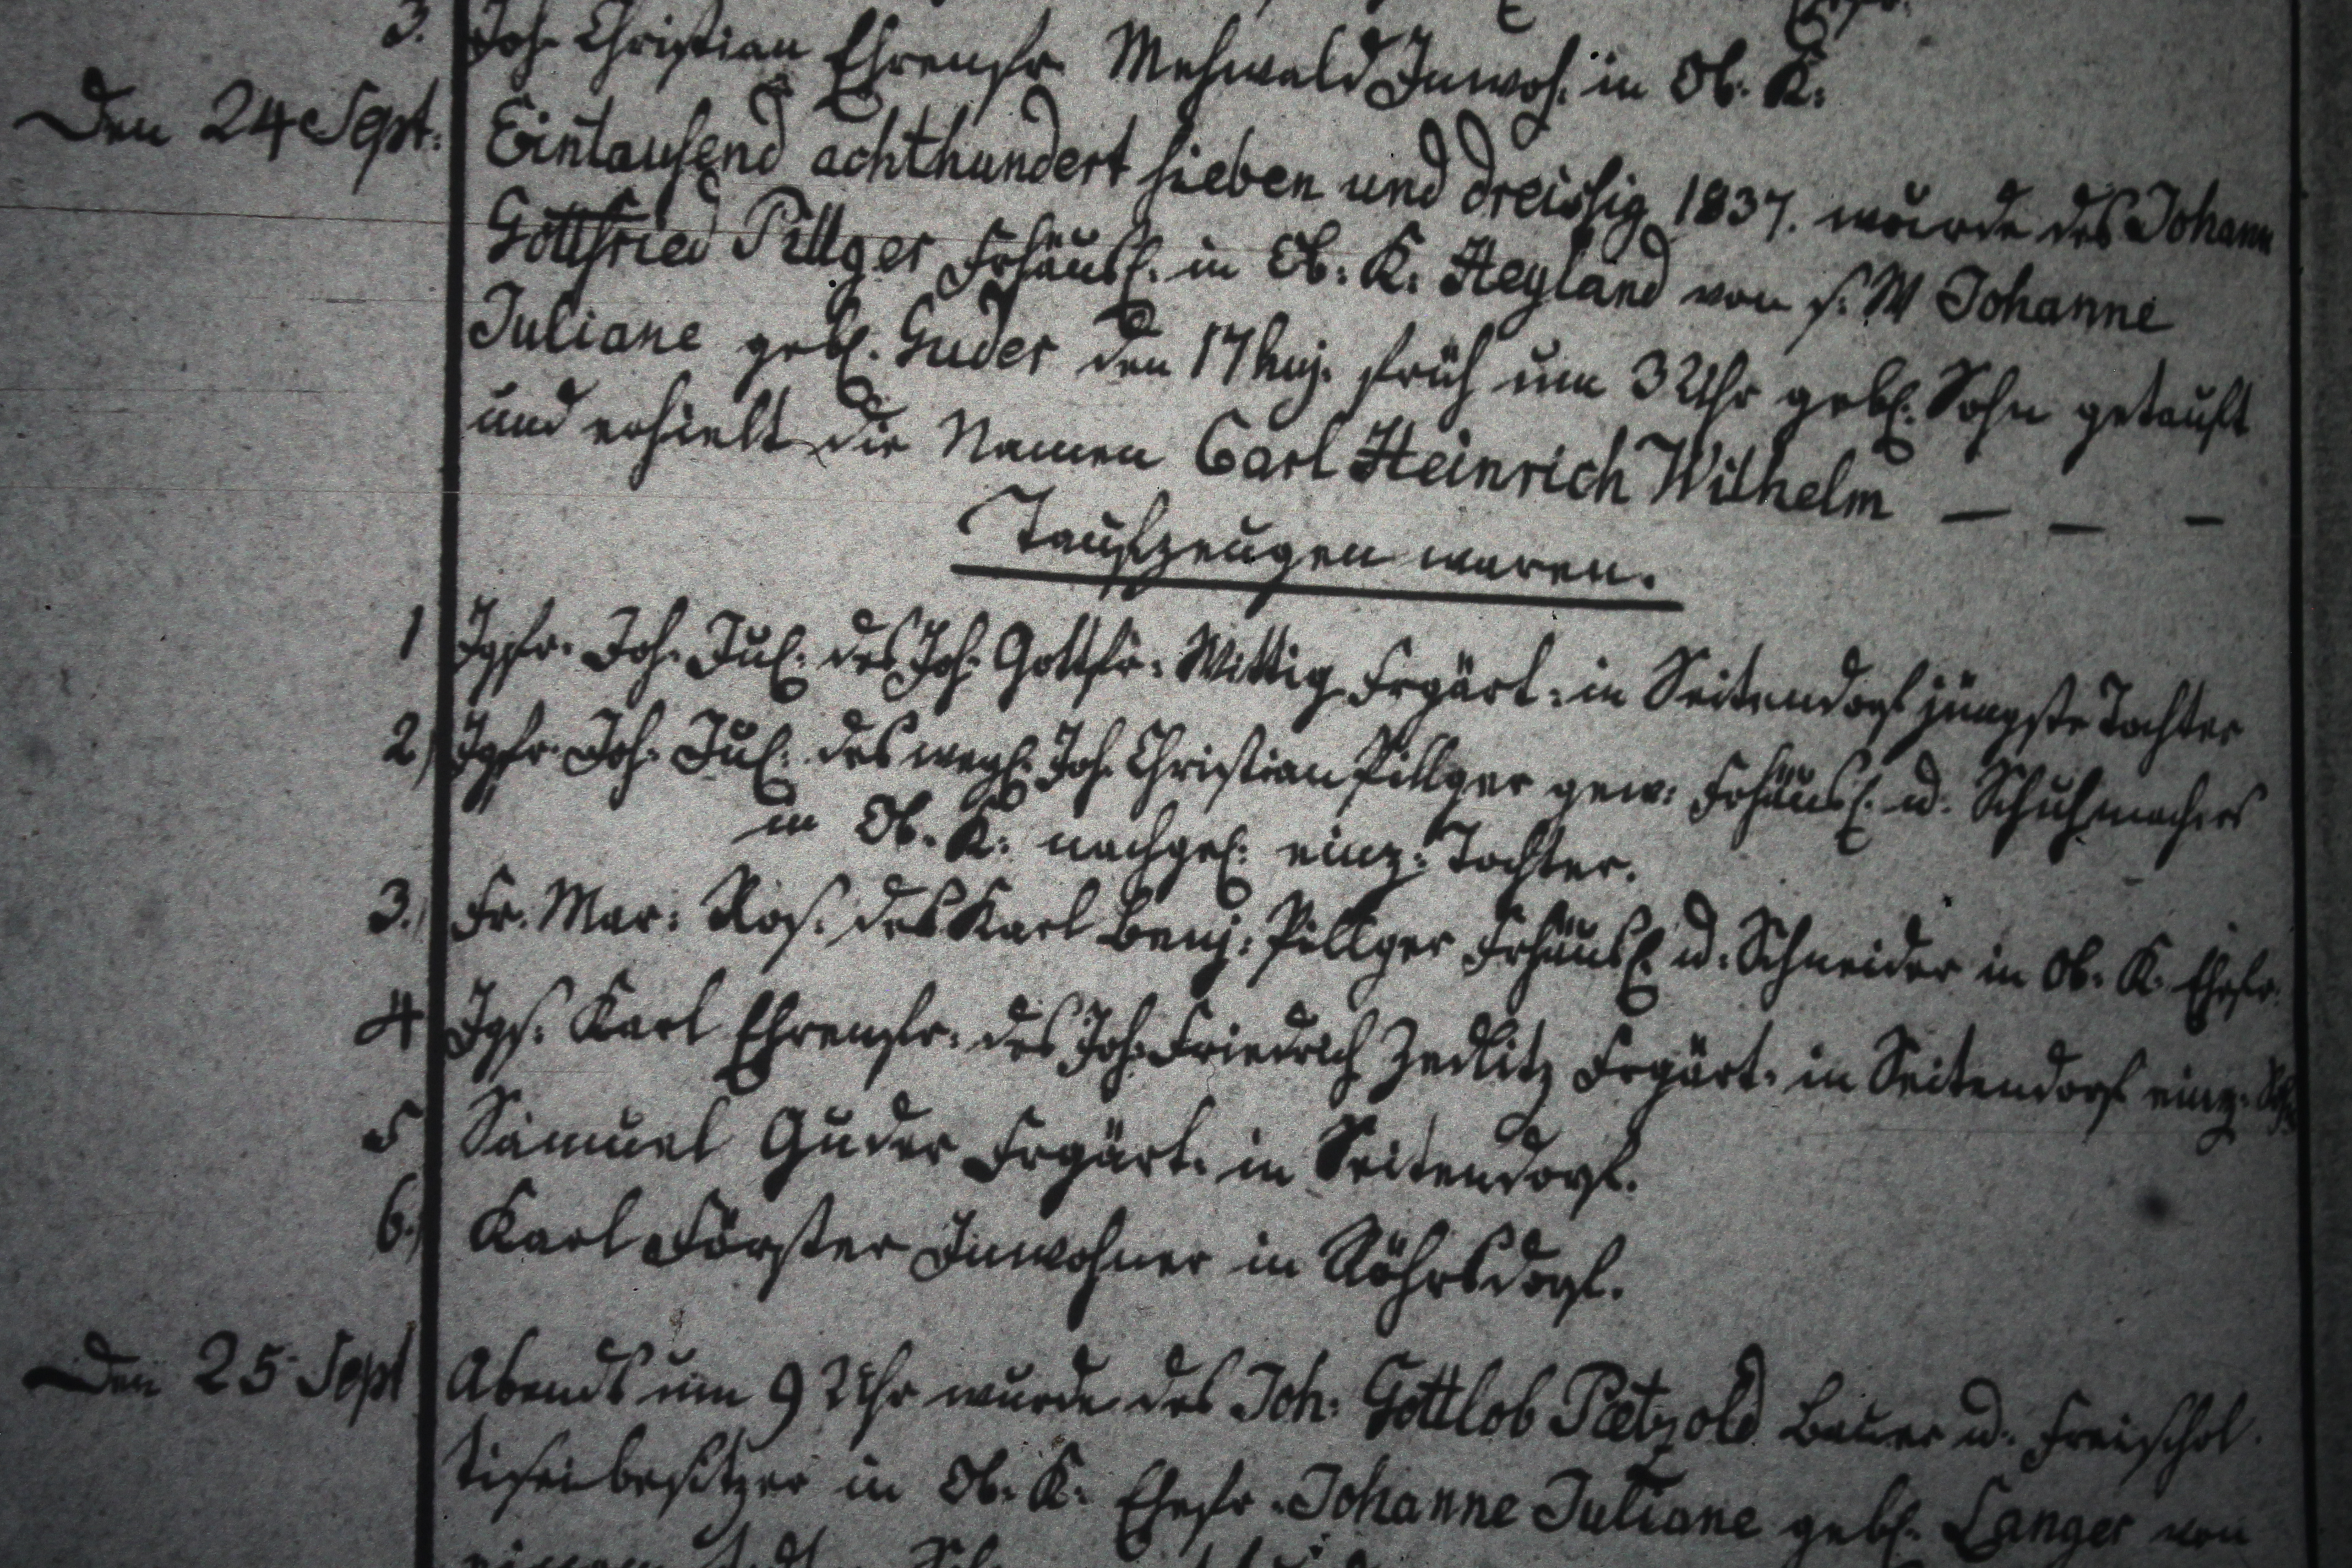 3. Joh. Christian Ehrenfr. Mehwald Inwoh. in Ob. K.
Den 24 Sept. Eintausend achthundert sieben und dreissig 1837. wurde des Johann
Gottfried Pillger Frhäusl. in Ob. K. Heyland von s. W Johanne
Juliane gebl. Guder den 17 huj. früh um 3 Uhr gebl. Sohn getauft
und erhielt die Namen Carl Heinrich Wilhelm — — —
Taufzeugen waren.
1 Jgfr. Joh. Jul. des Joh. Gottfr. Wittig Frgärt. in Seitendorf jüngste Tochter
2) Jgfr. Joh. Jul. des weyl. Joh. Christian Pillger gew. Frhäusl. u. Schuhmachers
in Ob. K. nachgel. einz. Tochter.
3.) Fr. Mar. Ros. des Karl Benj. Pillger Frhäusl. u. Schneider in Ob. K. Ehefr.
4 Jgs. Karl Ehrenfr. des Joh. Friedrich Zedlitz Frgärt. in Seitendorf einz.
5 Samuel Guder Frgärt. in Seitendorf.
6.) Karl Förster Inwohner in Röhrsdorf.
Den 25 Sept Abends um 9 Uhr wurde des Joh. Gottlob Paetzold Bauer u. Freischol
tiseibesitzer in Ob. K. Ehefr. Johanne Juliane gebl. Langer von